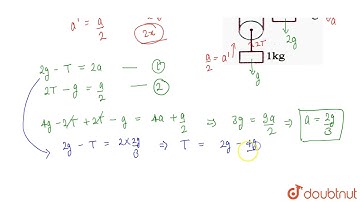 a' = a/2
2x
2T
2g
a/2 = a'
1kg
g
2g - T = 2a — 1
2T - g = a/2 — 2
4g - 2T + 2T - g = 4a + a/2 ⇒ 3g = 9a/2 ⇒ a = 2g/3
2g - T = 2×2g/3 ⇒ T = 2g - 4g
doubtnut